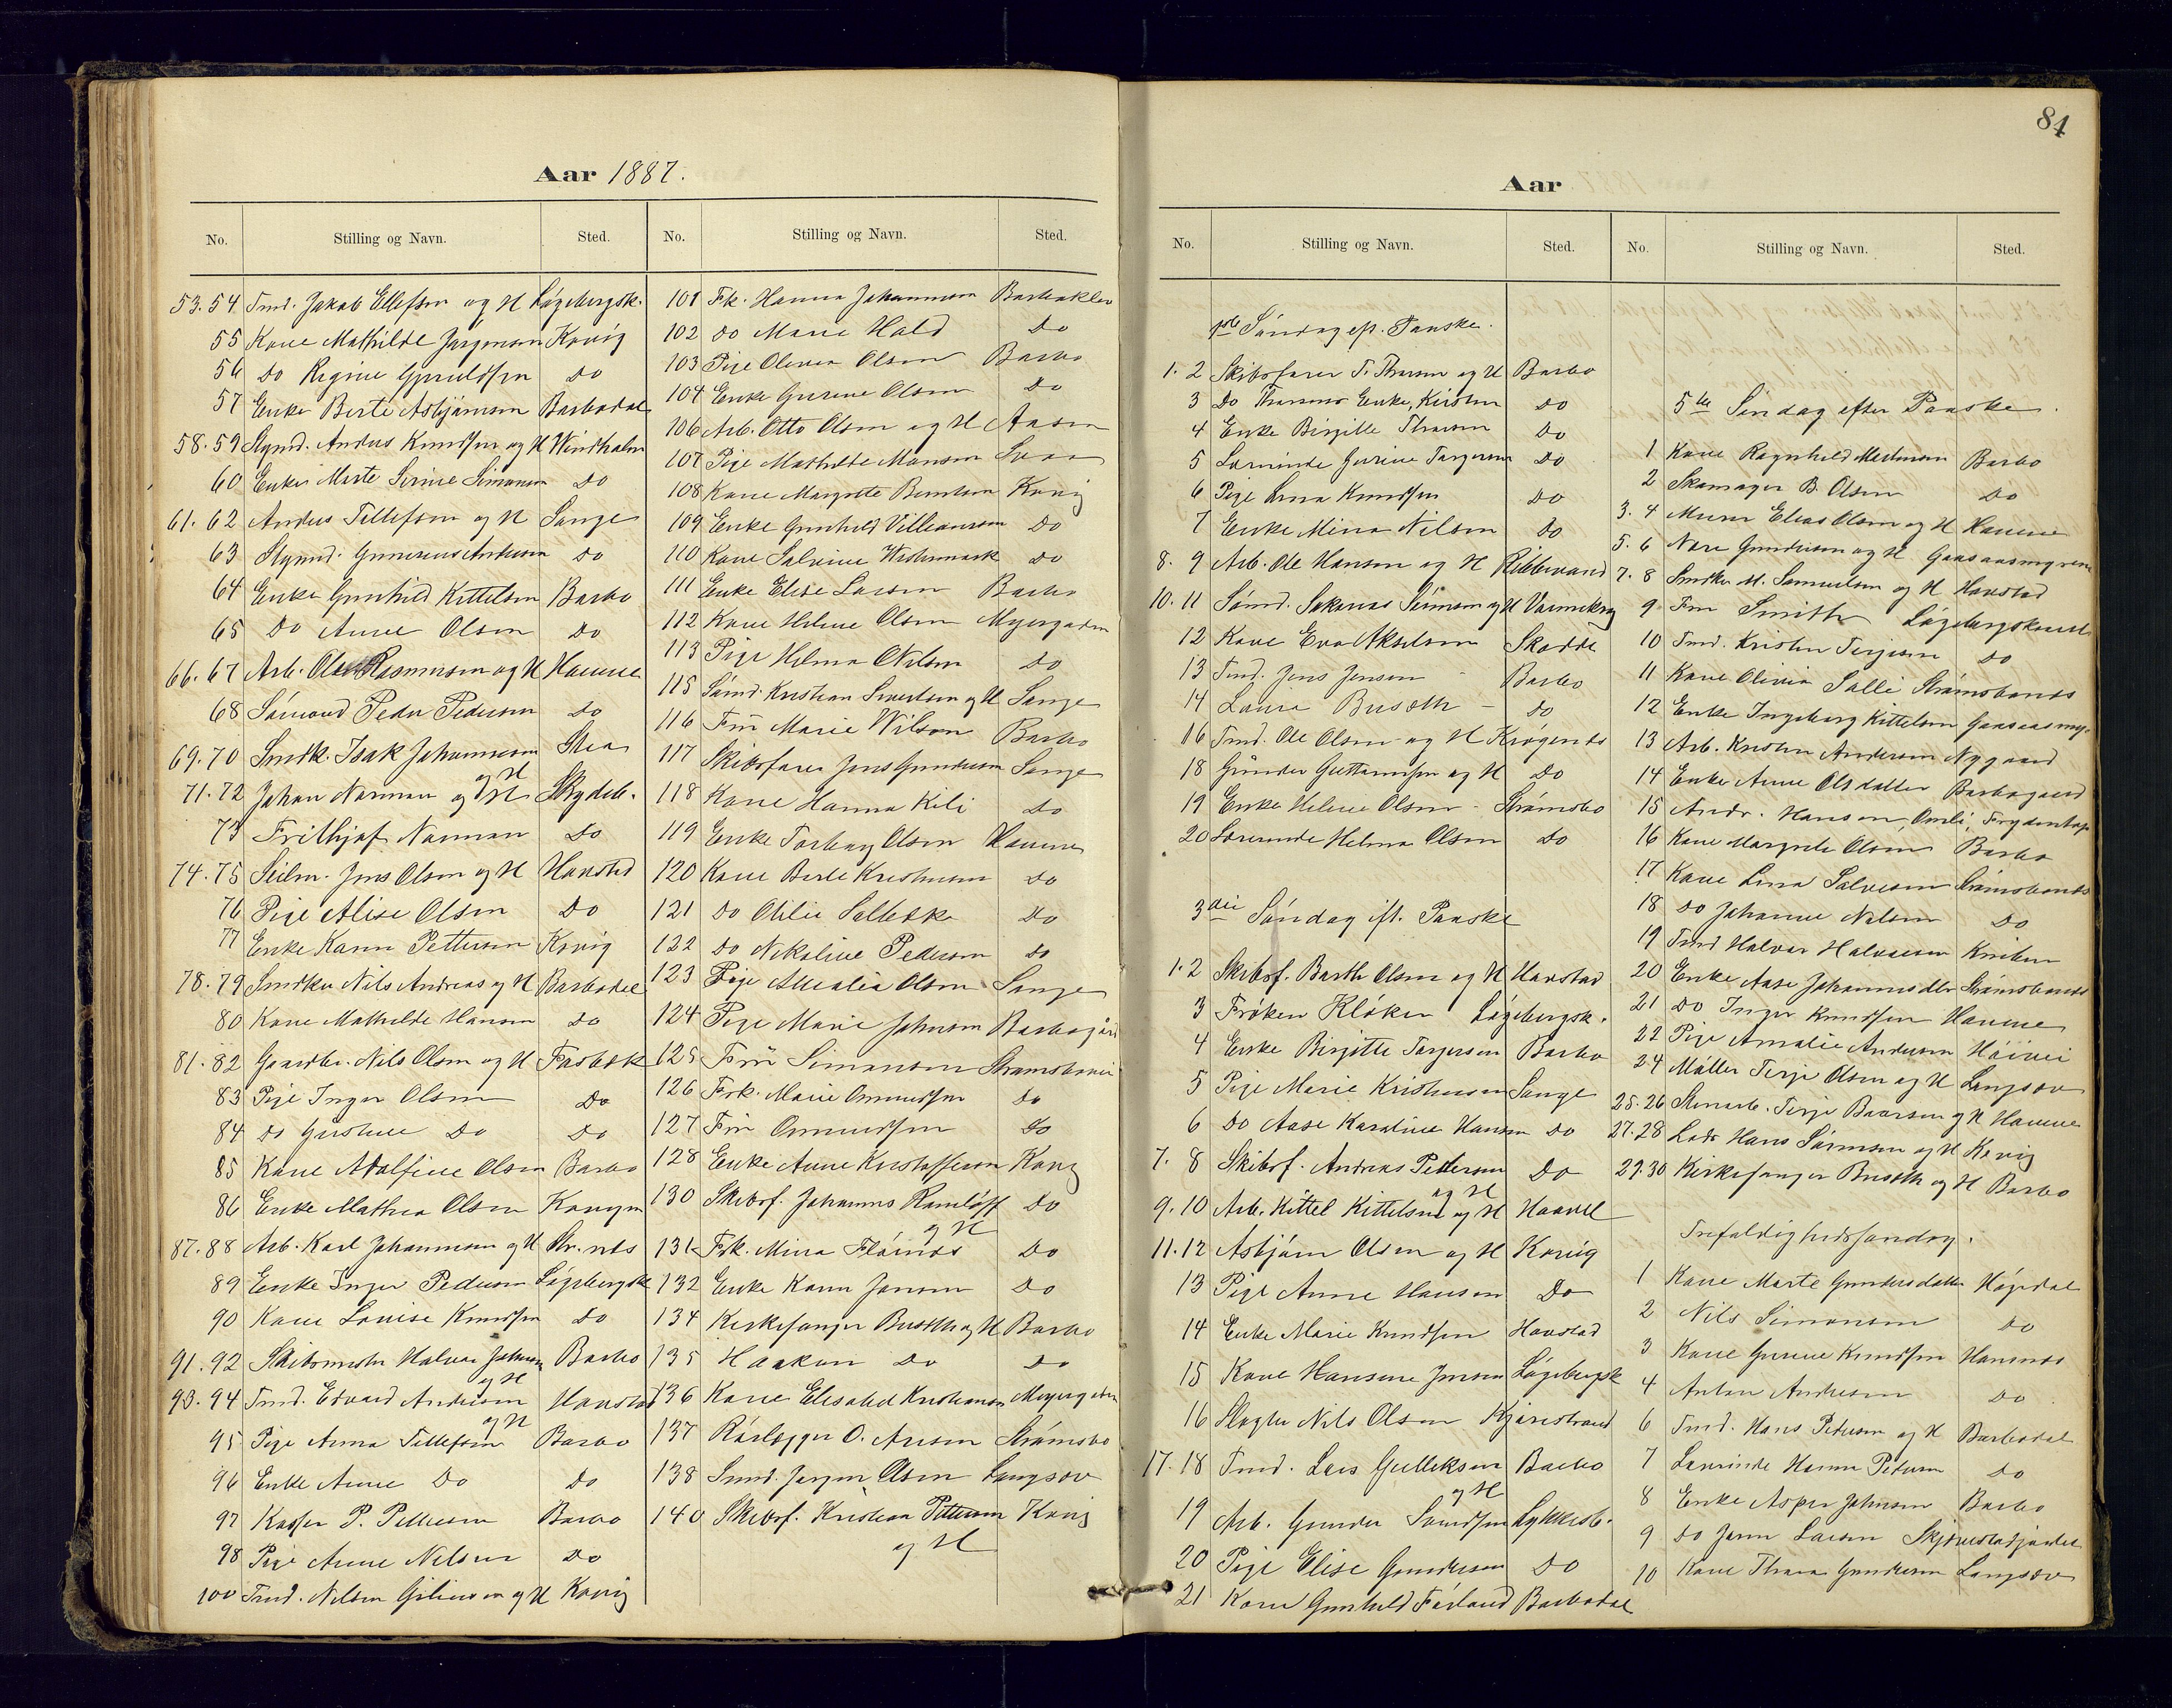 Aar 1887.
No. Stilling og Navn. Sted.
53.54 Tmd. Jakob Ellefsen og H Løgebergsk.
55 Kone Mathilde Jørgensen Kovig
56 Do Regine Do
57 Enke Berte Asbjørnsen Barbodal
58.59 Styrmd. Anders Knudsen og H Windholm
60 Enke Marte Serine Simonsen Do
61.62 Anders Tellefsen og H Sange
63 Styrmd. Andersen Do
64 Enke Gunhild Kittelsen Barbo
65 Do Anne Olsen Do
66.67 Arb. Ole Rasmussen og H Havene
68 Sømand Peder Pedersen Do
69.70 Smedk. Isak Johannesen og H
71.72 Johan Norman og H Skydeb.
73 Frithjof Norman Do
74.75 Seilm. Jens Olsen og H Havsted
76 Pige Alise Olsen Do
77 Enke Karen Pettersen Kovig
78.79 Smedker Nils Andreas og H Barbodal
80 Kone Mathilde Hansen Do
81.82 Gaardbr. Nils Olsen og H Frobæk
83 Pige Inger Olsen Do
84 Do Do Do
85 Kone Adolfine Olsen Barbo
86 Enke Mathea Olsen
87.88 Arb. Karl Johannesen og H
89 Enke Inger Pedersen Løgebergsk
90 Kone Louise Knudsen Do
91.92 Skibsmstr Halvor Johnsen og H Barbo
93.94 Tmd. Edvard Andersen og H Havstad
95 Pige Anna Tellefsen Barbo
96 Enke Anne Do Do
97 P. Pettersen Barbo
98 Pige Anne Nilsen Do
100 Tmd. Nilsen og H Kovig
No. Stilling og Navn. Sted.
101 Fk. Hanna Johannesen Barbokler
102 Do Marie Hald Do
103 Pige Olevia Olsen Barbo
104 Enke Gurine Olsen Do
106 Arb. Otto Olsen og H Aasen
107 Pige Mathilde Monsen
108 Kone Margrete Berntsen Kovig
109 Enke Gunhild Do
110 Kone Salvine Westermark Do
111 Enke Elise Larsen Barbo
112 Kone Helene Olsen Myrgaden
113 Pige Helma Nilsen Do
115 Sømd. Kristian og H Sange
116 Frü Marie Wilson Barbo
117 Skibsfører Jens Gundersen Sange
118 Kone Hanna Kili Do
119 Enke Torborg Olsen Havene
120 Kone Berte Kristensen Do
121 Do Otilie Do
122 Do Nikoline Pedersen Do
123 Pige Amalia Olsen Sange
124 Pige Marie Johnsen Barbogård
125 Frü Simonsen
126 Frk. Marie Do
127 Frü Do
128 Enke Anne Kristoffersen Kovig
130 Skibsf. Johannes og H Do
131 Frk. Mina Do
132 Enke Karen Jensen Do
134 Kirkesanger Busøth og H Barbo
135 Haakon Do Do
136 Kone Elisabed Kristiansen Myrgaden
137 Rørlægger O. Strømsbo
138 Smd. Jørgen Olsen Langsæv
140 Skibsf. Kristian Pettersen og H Kovig
84
Aar
No. Stilling og Navn. Sted.
1ste Søndag ef. Paaske.
1.2 Skibsfører T. Thorsen og H Barbo
3 Do Thorsens Enke, Kirsten Do
4 Enke Birgitte Thorsen Do
5 Lærerinde Gurine Torgersen Do
6 Pige Lina Knudsen Do
7 Enke Mina Nilsen Do
8.9 Arb. Ole Hansen og H
10.11 Sømd. Sakarias og H
12 Kone Eva Akselsen
13 Tmd. Jens Jensen Barbo
14 Laura Busøth Do
16 Tmd. Ole Olsen og H Krøgenes
18 Günder og H Do
19 Enke Helene Olsen Strømsbo
20 Lærerinde Helma Olsen Do
3die Søndag eft. Paaske
1.2 Skibsf. Barth Olsen og H Havstad
3 Frøken Kløker Løgebergsk.
4 Enke Birgitte Torgersen Barbo
5 Pige Marie Kristensen Sange
6 Do Aase Karoline Hansen Do
7.8 Skibsf. Andreas Pedersen og H Do
9.10 Arb. Kittel Kittelsen og H
11.12 Asbjørn Olsen og H Kovig
13 Pige Anne Hansen Do
14 Enke Marie Knudsen Havstad
15 Kone Hansine Jensen Løgebergsk
16 Slagter Nils Olsen
17.18 Tmd. Lars Gulleksen og H Barbo
19 Arb. Gunder Lykkesb.
20 Pige Elise Gundersen Do
21 Kone Gunhild Barbodal
No. Stilling og Navn. Sted.
5te Søndag efter Paaske.
1 Kone Ragnhild Barbo
2 Skomager B. Olsen Do
3.4 Murer Elias Olsen og H Havene
5.6 Gundersen og H
7.8 Smedkr M. Samuelsen og H Havstad
9 Frü Smith
10 Tmd. Kristen Terjesen Do
11 Kone Olivia Salli
12 Enke Ingeborg Kittelsen
13 Arb. Kristen Andersen Nygaard
14 Enke Anne Olsdatter Barbogaard
15 Andr. Hansen, Omli,
16 Kone Margrete Olsen Barbo
17 Kone Lina Salvesen
18 Do Johanne Nilsen Do
19 Tmd Halvor Halvorsen
20 Enke Aase Johannesdtr
21 Do Inger Knudsen Havene
22 Pige Amalie Andersen
24 Møller Terje Olsen og H Langsæv
25.26 Stenarb. Terje og H Havene
27.28 Lods Hans Sørensen og H Kovig
29.30 Kirkesanger Busøth og H Barbo
Trefoldighedssøndag.
1 Kone Marte Gundersdatter
2 Nils Simonsen Do
3 Kone Gurine Knudsen
4 Anton Andersen Do
6 Tmd. Hans Pedersen og H Barbodal
7 Lærerinde Hanna Pedersen Do
8 Enke Johnsen Barbo
9 Do Larsen
10 Kone Thora Gundersen Langsæv